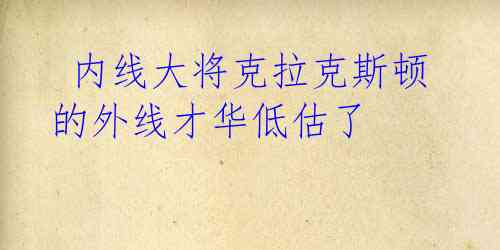 内线大将克拉克斯顿
的外线才华低估了